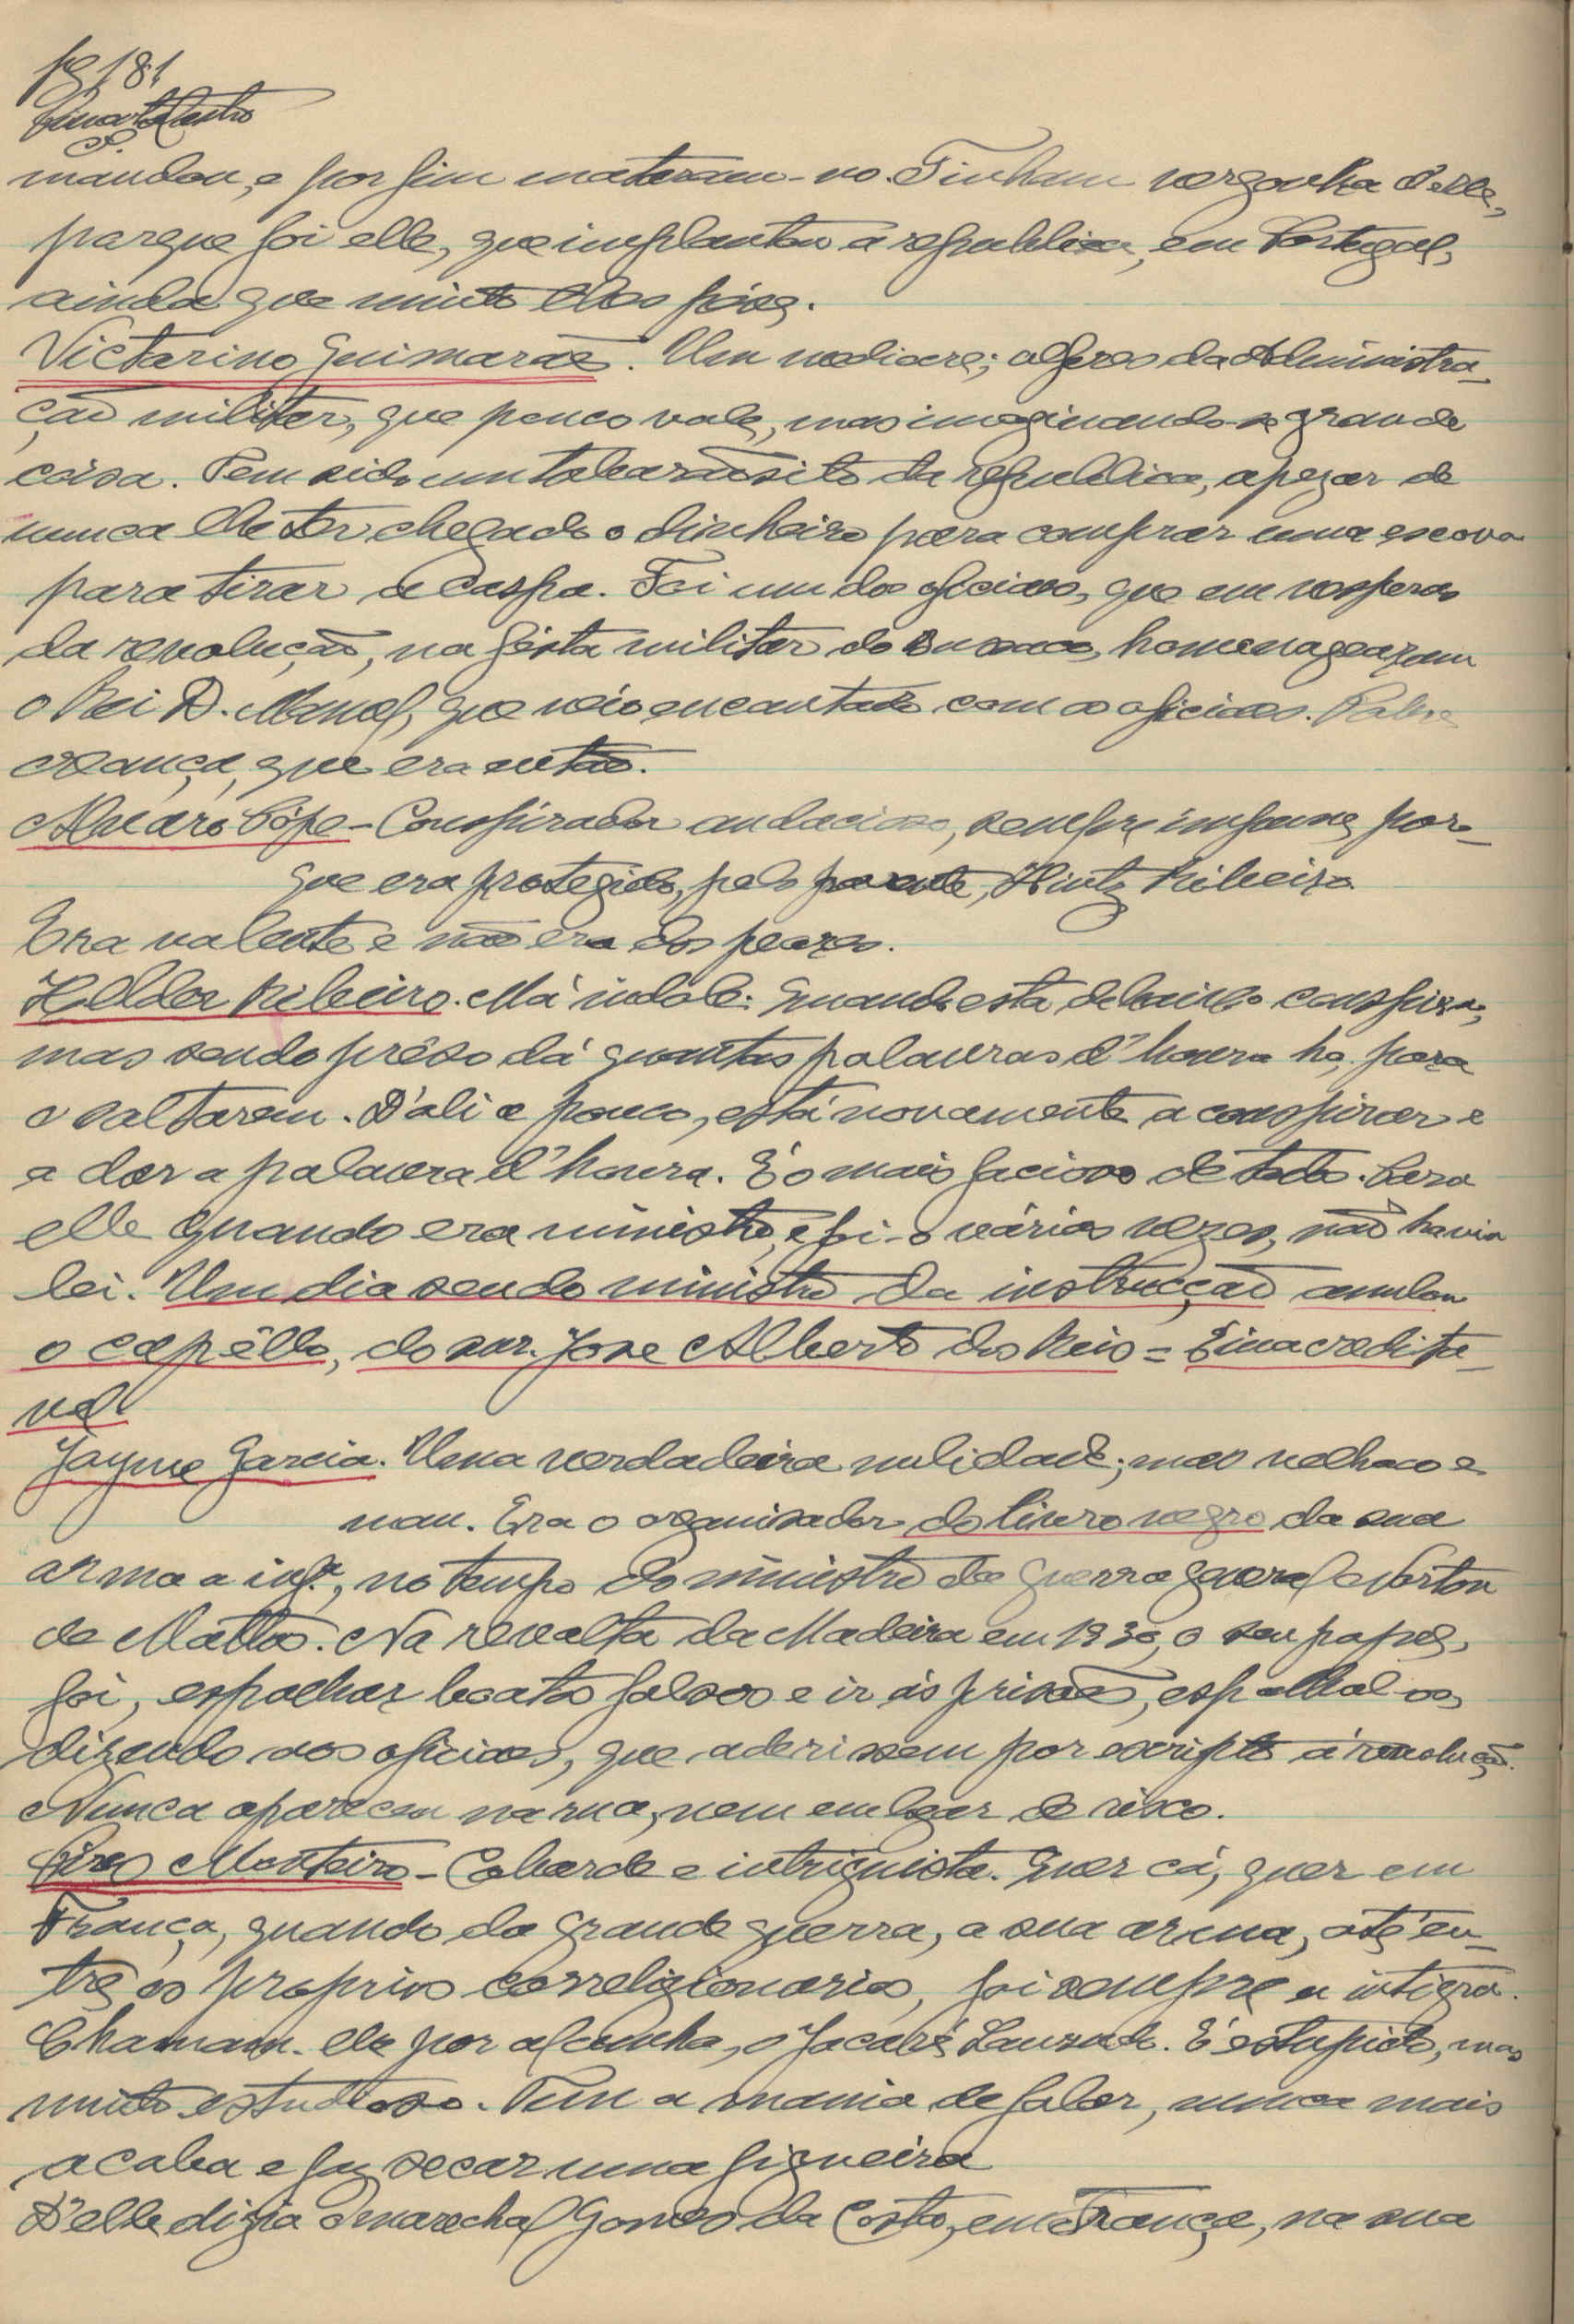 pg 181
mandou, e por fim mataram-no. Tinham vergonha delle,
porque foi elle, que implantou a republica, em Portugal,
ainda que muito lhes pése.
Victorino Guimarães. Um mediocre; alferes da Administra-
ção militar, que pouco vale, mas imaginando-se grande
coisa. Tem sido um tal parasito da republica, apezar de
nunca lhe ter chegado o dinheiro para comprar uma escova
para tirar a caspa. Foi um dos oficiaes, que em vesperas
da revolução, na festa militar do Bussaco, homenagearam
o Rei D. Manoel, que veio encantado com os oficiaes. Pobre
creança, que era então.
Alvaro Pópe - Conspirador audacioso, sempre impune, por-
que era protegido, pelo parente, Hintz Ribeiro.
Era valente e não era dos peores.
Helder Ribeiro. Má indole: Quando está debaixo conspira,
mas sendo prêso dá quantas palavras d'honra ha, para
o soltarem. D'ali a pouco, está novamente a conspirar e
a dar a palavra d'honra. É o mais facioso de todos. Para
elle quando era ministro, e foi-o várias vezes, não havia
lei. Um dia sendo ministro da instrucção anulou
o capêllo, do snr. Jose Alberto dos Reis = É inacredita-
vel
Jayme Garcia. Uma verdadeira nulidade; mas velhaco e
mau. Era o organisador do livro negro da sua
arma a infª, no tempo do ministro da guerra general Norton
de Mattos. Na revolta da Madeira em 1930, o seu papel,
foi, espalhar boatos falsos e ir ás prisões, espalhal-os,
dizendo aos oficiaes, que aderissem por escripto á revolução.
Nunca apareceu na rua, nem em logar de risco.
Pires Monteiro - Cobarde e intriguista. Quer cá, quer em
França, quando da grande guerra, a sua arma, até en-
tre os proprios correligionarios, foi sempre a intriga.
Chamam-lhe por alcunha, o Jacaré. É estupido, mas
muito estudioso. Tem a mania de falar, nunca mais
acaba e faz secar uma figueira
D'elle dizia o marechal Gomes da Costa, em França, na sua